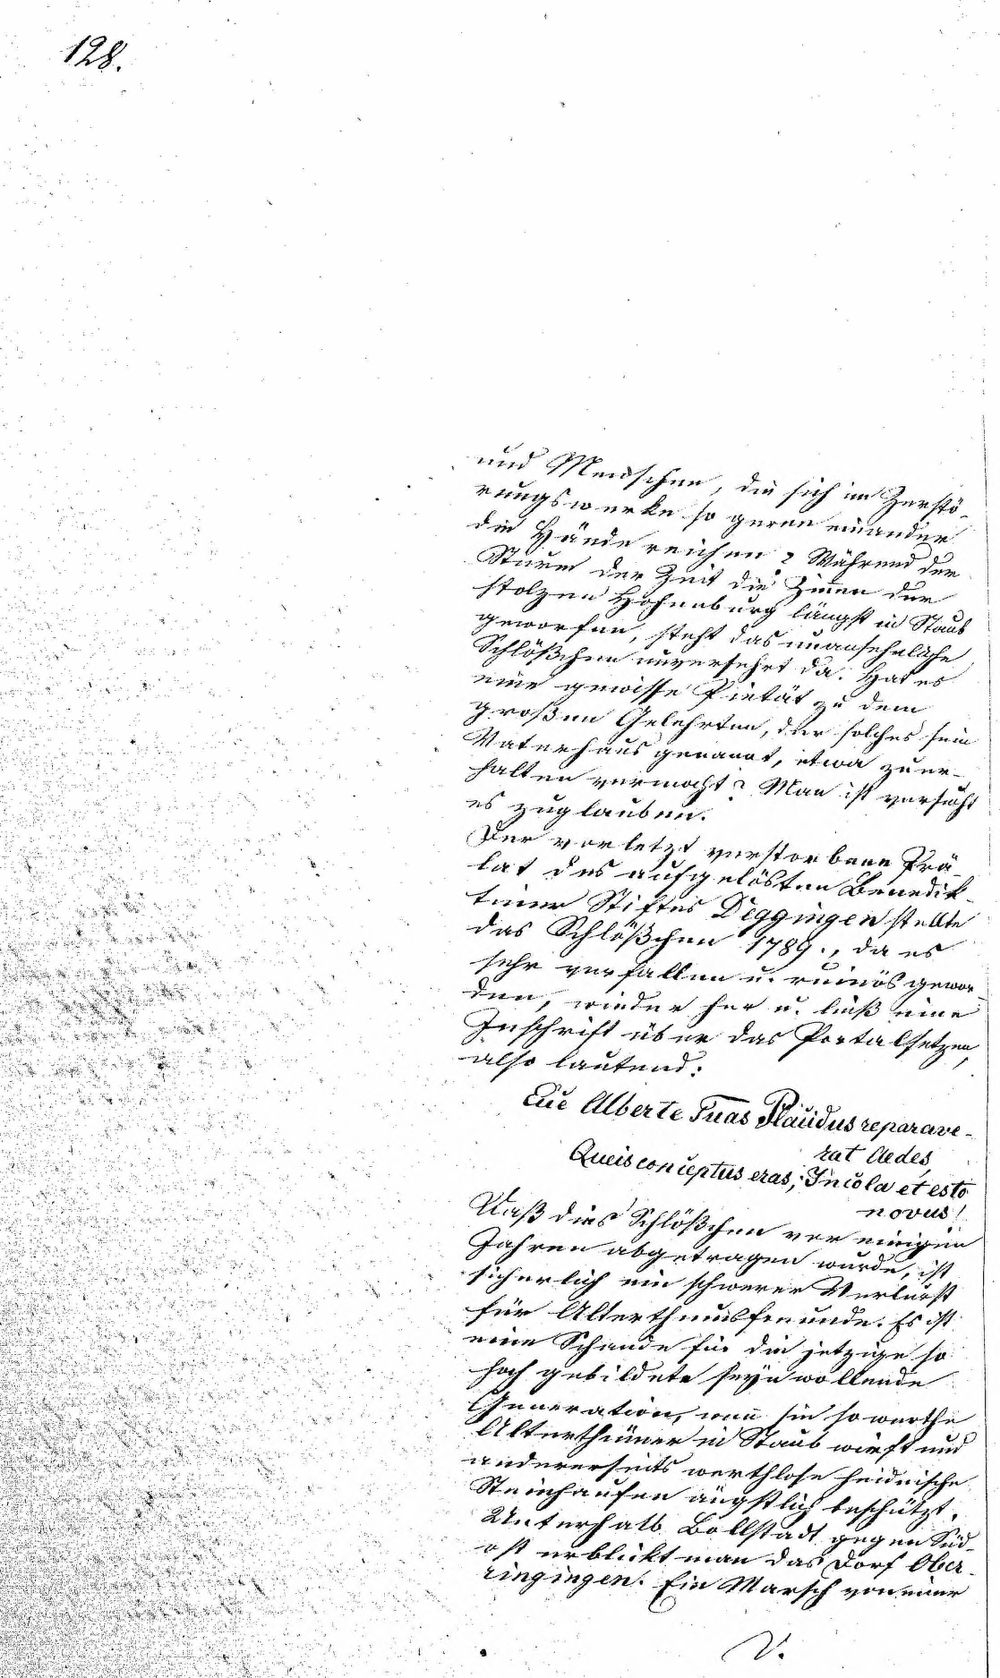 128.
und Menschen, die sich im Zerstö-
rungswerke so gerne einander
die Hände reichen? Während der
Sturm der Zeit die Zinnen der
stolzen Hohenburg längst in Staub
geworfen, steht das unansehnliche
Schlößchen unversehrt da. Hat es
eine gewisse Pietät zu dem
großen Gelehrten, der solches sein
Vaterhaus genannt, etwa zu er-
halten vermocht? Man ist versucht
es zu glauben.
Der vorletzt verstorbene Prä-
lat des aufgelösten Benedik-
tiner Stiftes Deggingen stellte
das Schlößchen 1789., da es
sehr verfallen u. ruinös gewor-
den, wieder her u. ließ eine
Inschrift über das Portal setzen,
also lautend:
Alberte Tuas Placidus reparave-
rat Aedes,
Queis conceptus eras; Incola et esto
novus!
Daß dies Schlößchen vor einigen
Jahren abgetragen wurde, ist
sicherlich ein schwerer Verlurst
für Alterthumsfreunde. Es ist
eine Schande für die jetzige so
hoch gebildete seyn wollende
Generation, wenn sie so werthe
Alterthümer in Staub wirft und
andererseits werthlose heidnische
Steinhaufen ängstlich beschützt.
Unterhalb Bollstadt gegen Süd-
ost erblickt man das Dorf Ober-
ringingen. Ein Marsch von einer
V.